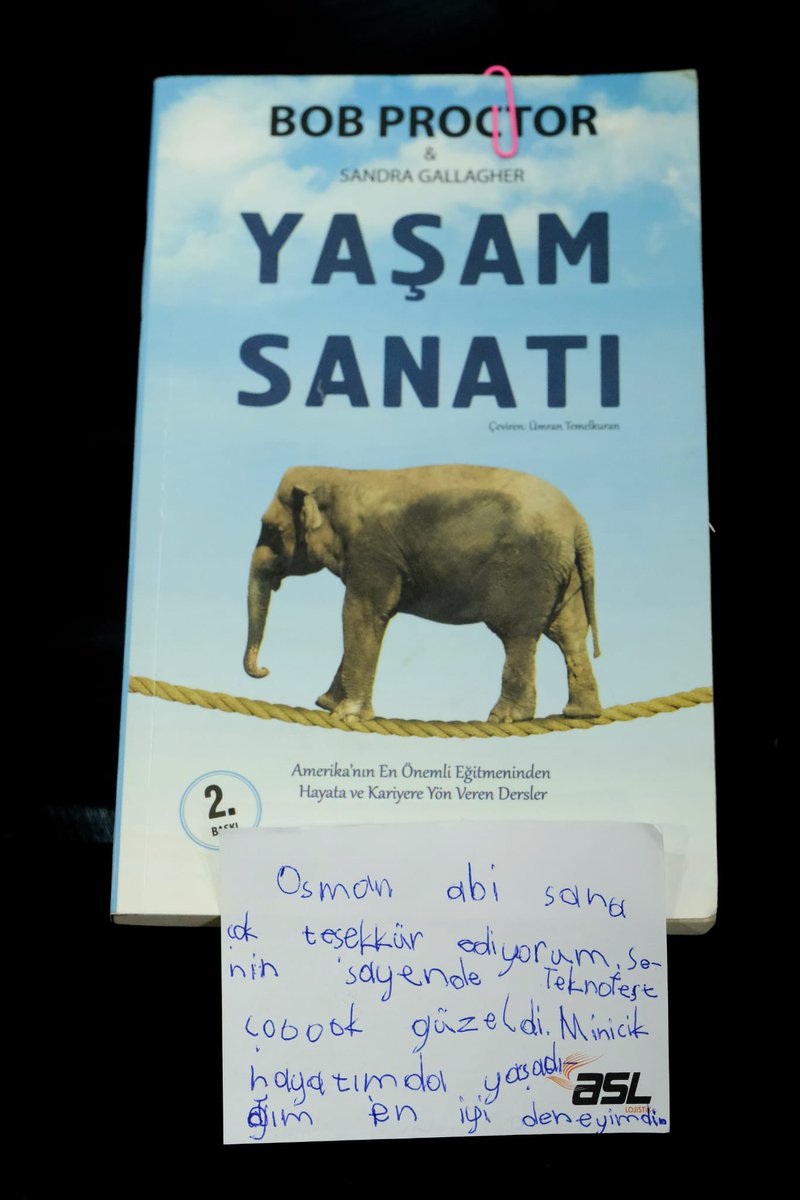 BOB PROCTOR
&
SANDRA GALLAGHER
YAŞAM
SANATI
Çeviren: Ümran Temelkuran
Amerika'nın En Önemli Eğitmeninden
Hayata ve Kariyere Yön Veren Dersler
2.
BASKI
Osman abi sana
çok teşekkür ediyorum. Se-
nin sayende Teknofest
çooook güzeldi. Minicik
hayatımda yaşadı-
ğım en iyi deneyimdi
asl
LOJİSTİK